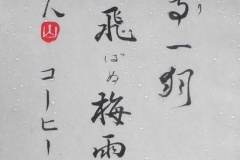 り
一羽
飛ばぬ梅雨
人 山
コーヒー